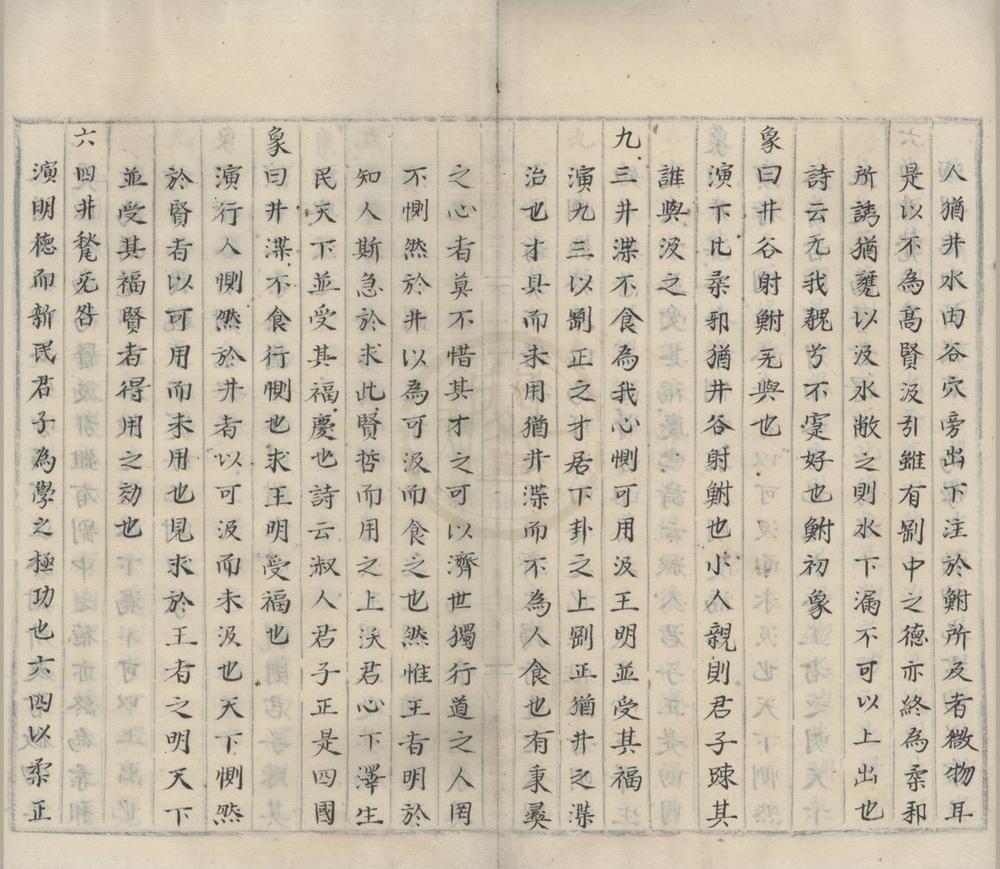 人猶井水由谷穴旁出下注於鮒所及者微物耳
是以不為髙賢汲引雖有剛中之徳亦終為柔邪
所誘猶甕以汲水敝之則水下漏不可以上出也
詩云无我魗兮不寁好也鮒初象
象曰井谷射鮒无與也
演下比柔邪猶井谷射鮒也小人親則君子踈其
誰與汲之
九三井渫不食為我心惻可用汲王明並受其福
演九三以剛正之才居下卦之上剛正猶井之渫
治也才具而未用猶井渫而不為人食也有秉彛
之心者莫不惜其才之可以濟世獨行道之人罔
不惻然於井以為可汲而食之也然惟王者明於
知人斯急於求此賢哲而用之上沃君心下澤生
民天下並受其福慶也詩云淑人君子正是四國
象曰井渫不食行惻也求王明受福也
演行人惻然於井者以可汲而未汲也天下惻然
於賢者以可用而未用也見求於王者之明天下
並受其福賢者得用之効也
六四井甃无咎
演明徳而新民君子為學之極功也六四以柔正